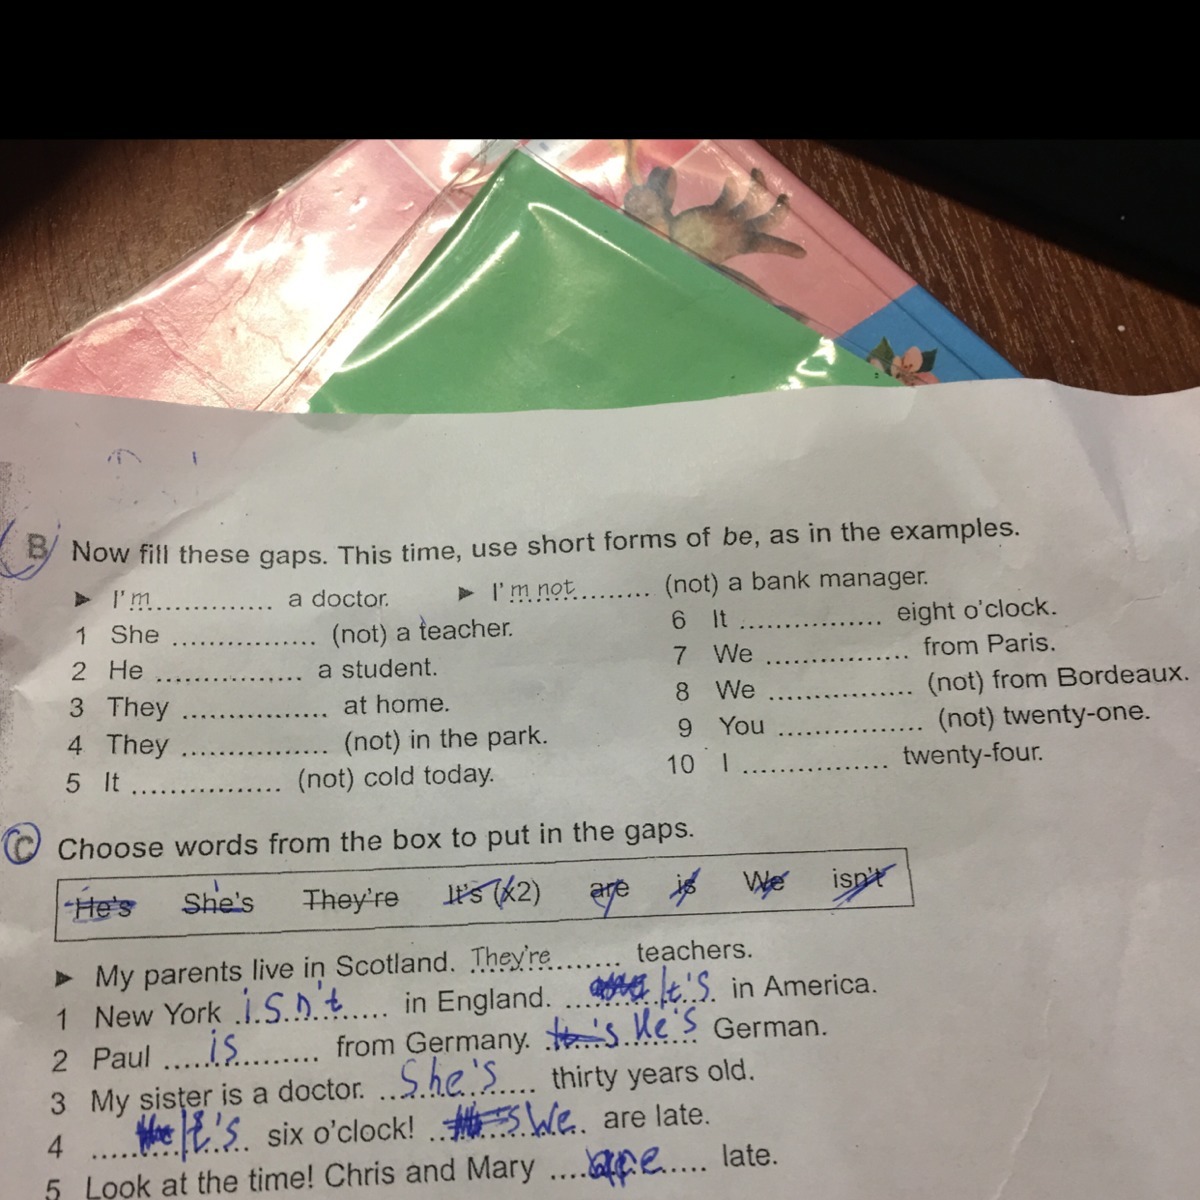 B Now fill these gaps. This time, use short forms of be, as in the examples.
► I'm............... a doctor. ► I'm not.......... (not) a bank manager.
1 She ................ (not) a teacher.
2 He ................ a student.
3 They ................ at home.
4 They ................ (not) in the park.
5 It ................ (not) cold today.
6 It ................ eight o'clock.
7 We ................ from Paris.
8 We ................ (not) from Bordeaux.
9 You ................ (not) twenty-one.
10 I ................ twenty-four.
C Choose words from the box to put in the gaps.
He's She's They're It's (x2) are is We isn't
► My parents live in Scotland. They're........ teachers.
1 New York isn't in England. It's in America.
2 Paul is from Germany. He's German.
3 My sister is a doctor. She's thirty years old.
4 It's six o'clock! We are late.
5 Look at the time! Chris and Mary are late.